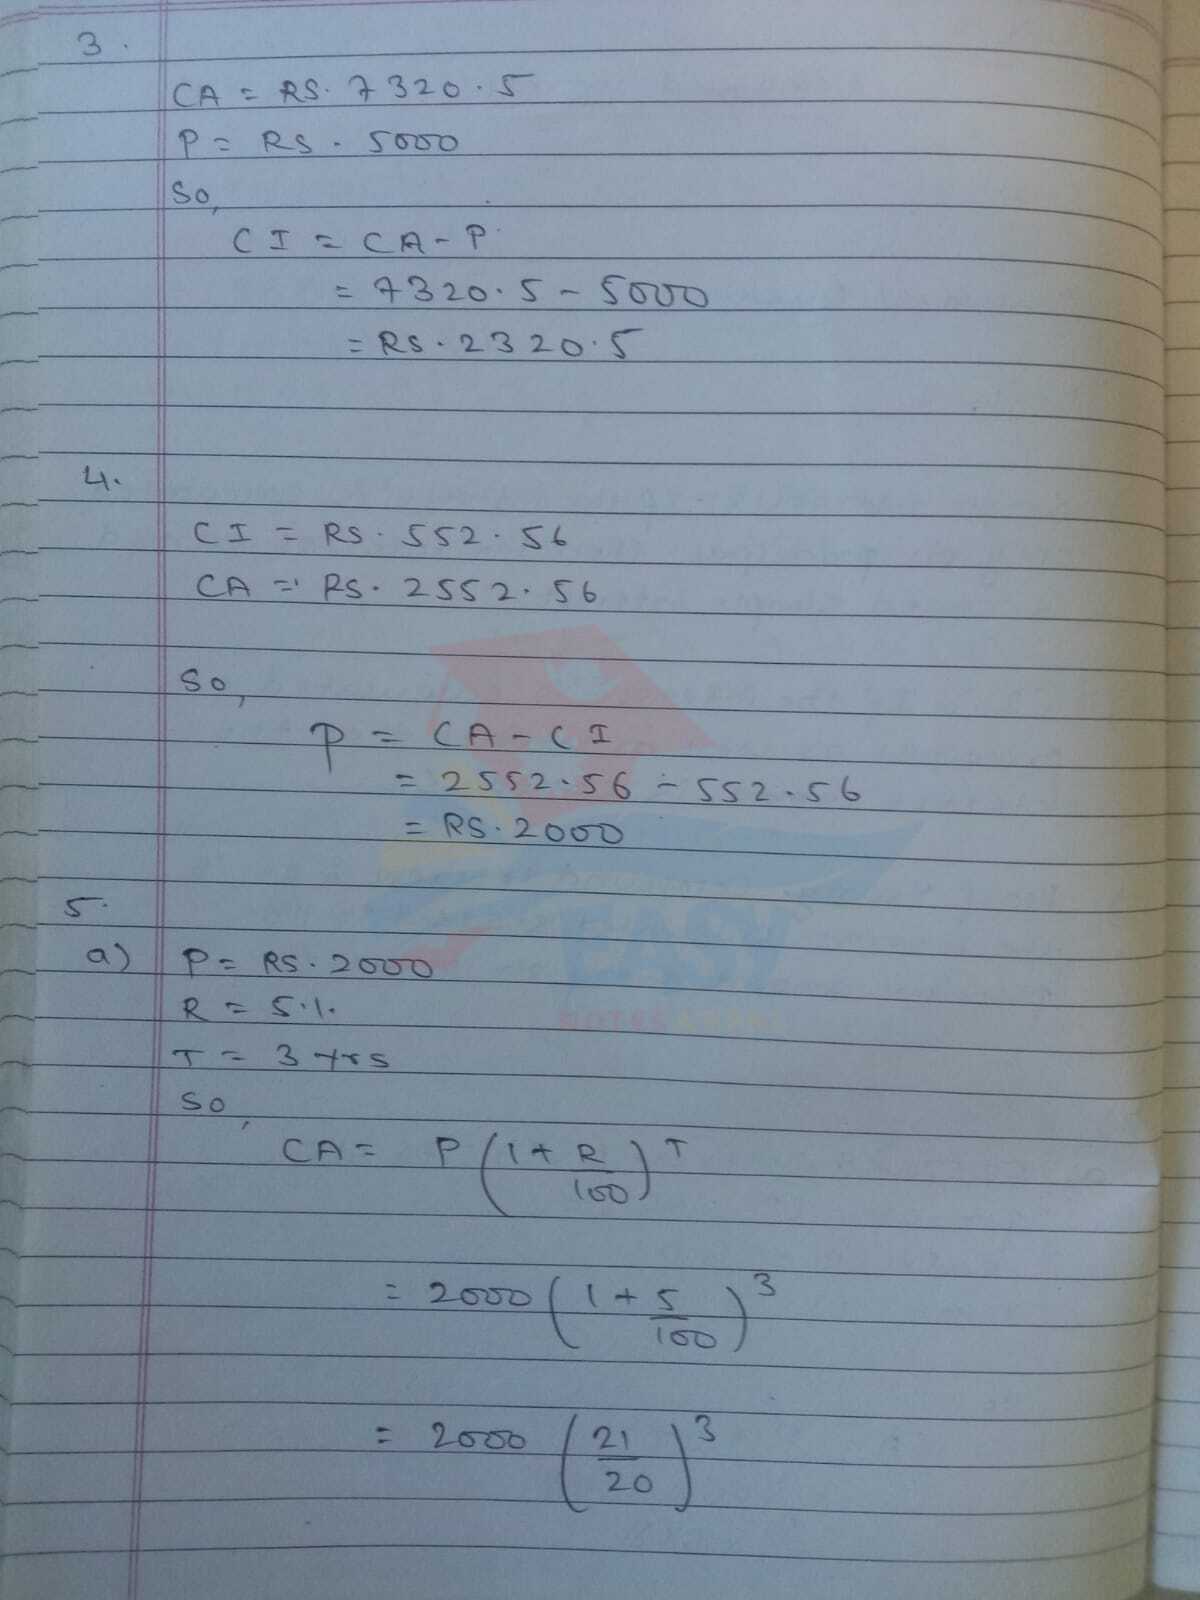 3.
CA = RS. 7320.5
P = RS. 5000
So,
CI = CA - P
= 7320.5 - 5000
= RS. 2320.5
4.
CI = RS. 552.56
CA = RS. 2552.56
So,
P = CA - CI
= 2552.56 - 552.56
= RS. 2000
5.
a) P = RS. 2000
R = 5%
T = 3 yrs
So,
CA = P (1 + R/100)^T
= 2000 (1 + 5/100)^3
= 2000 (21/20)^3
EASY
NOTES